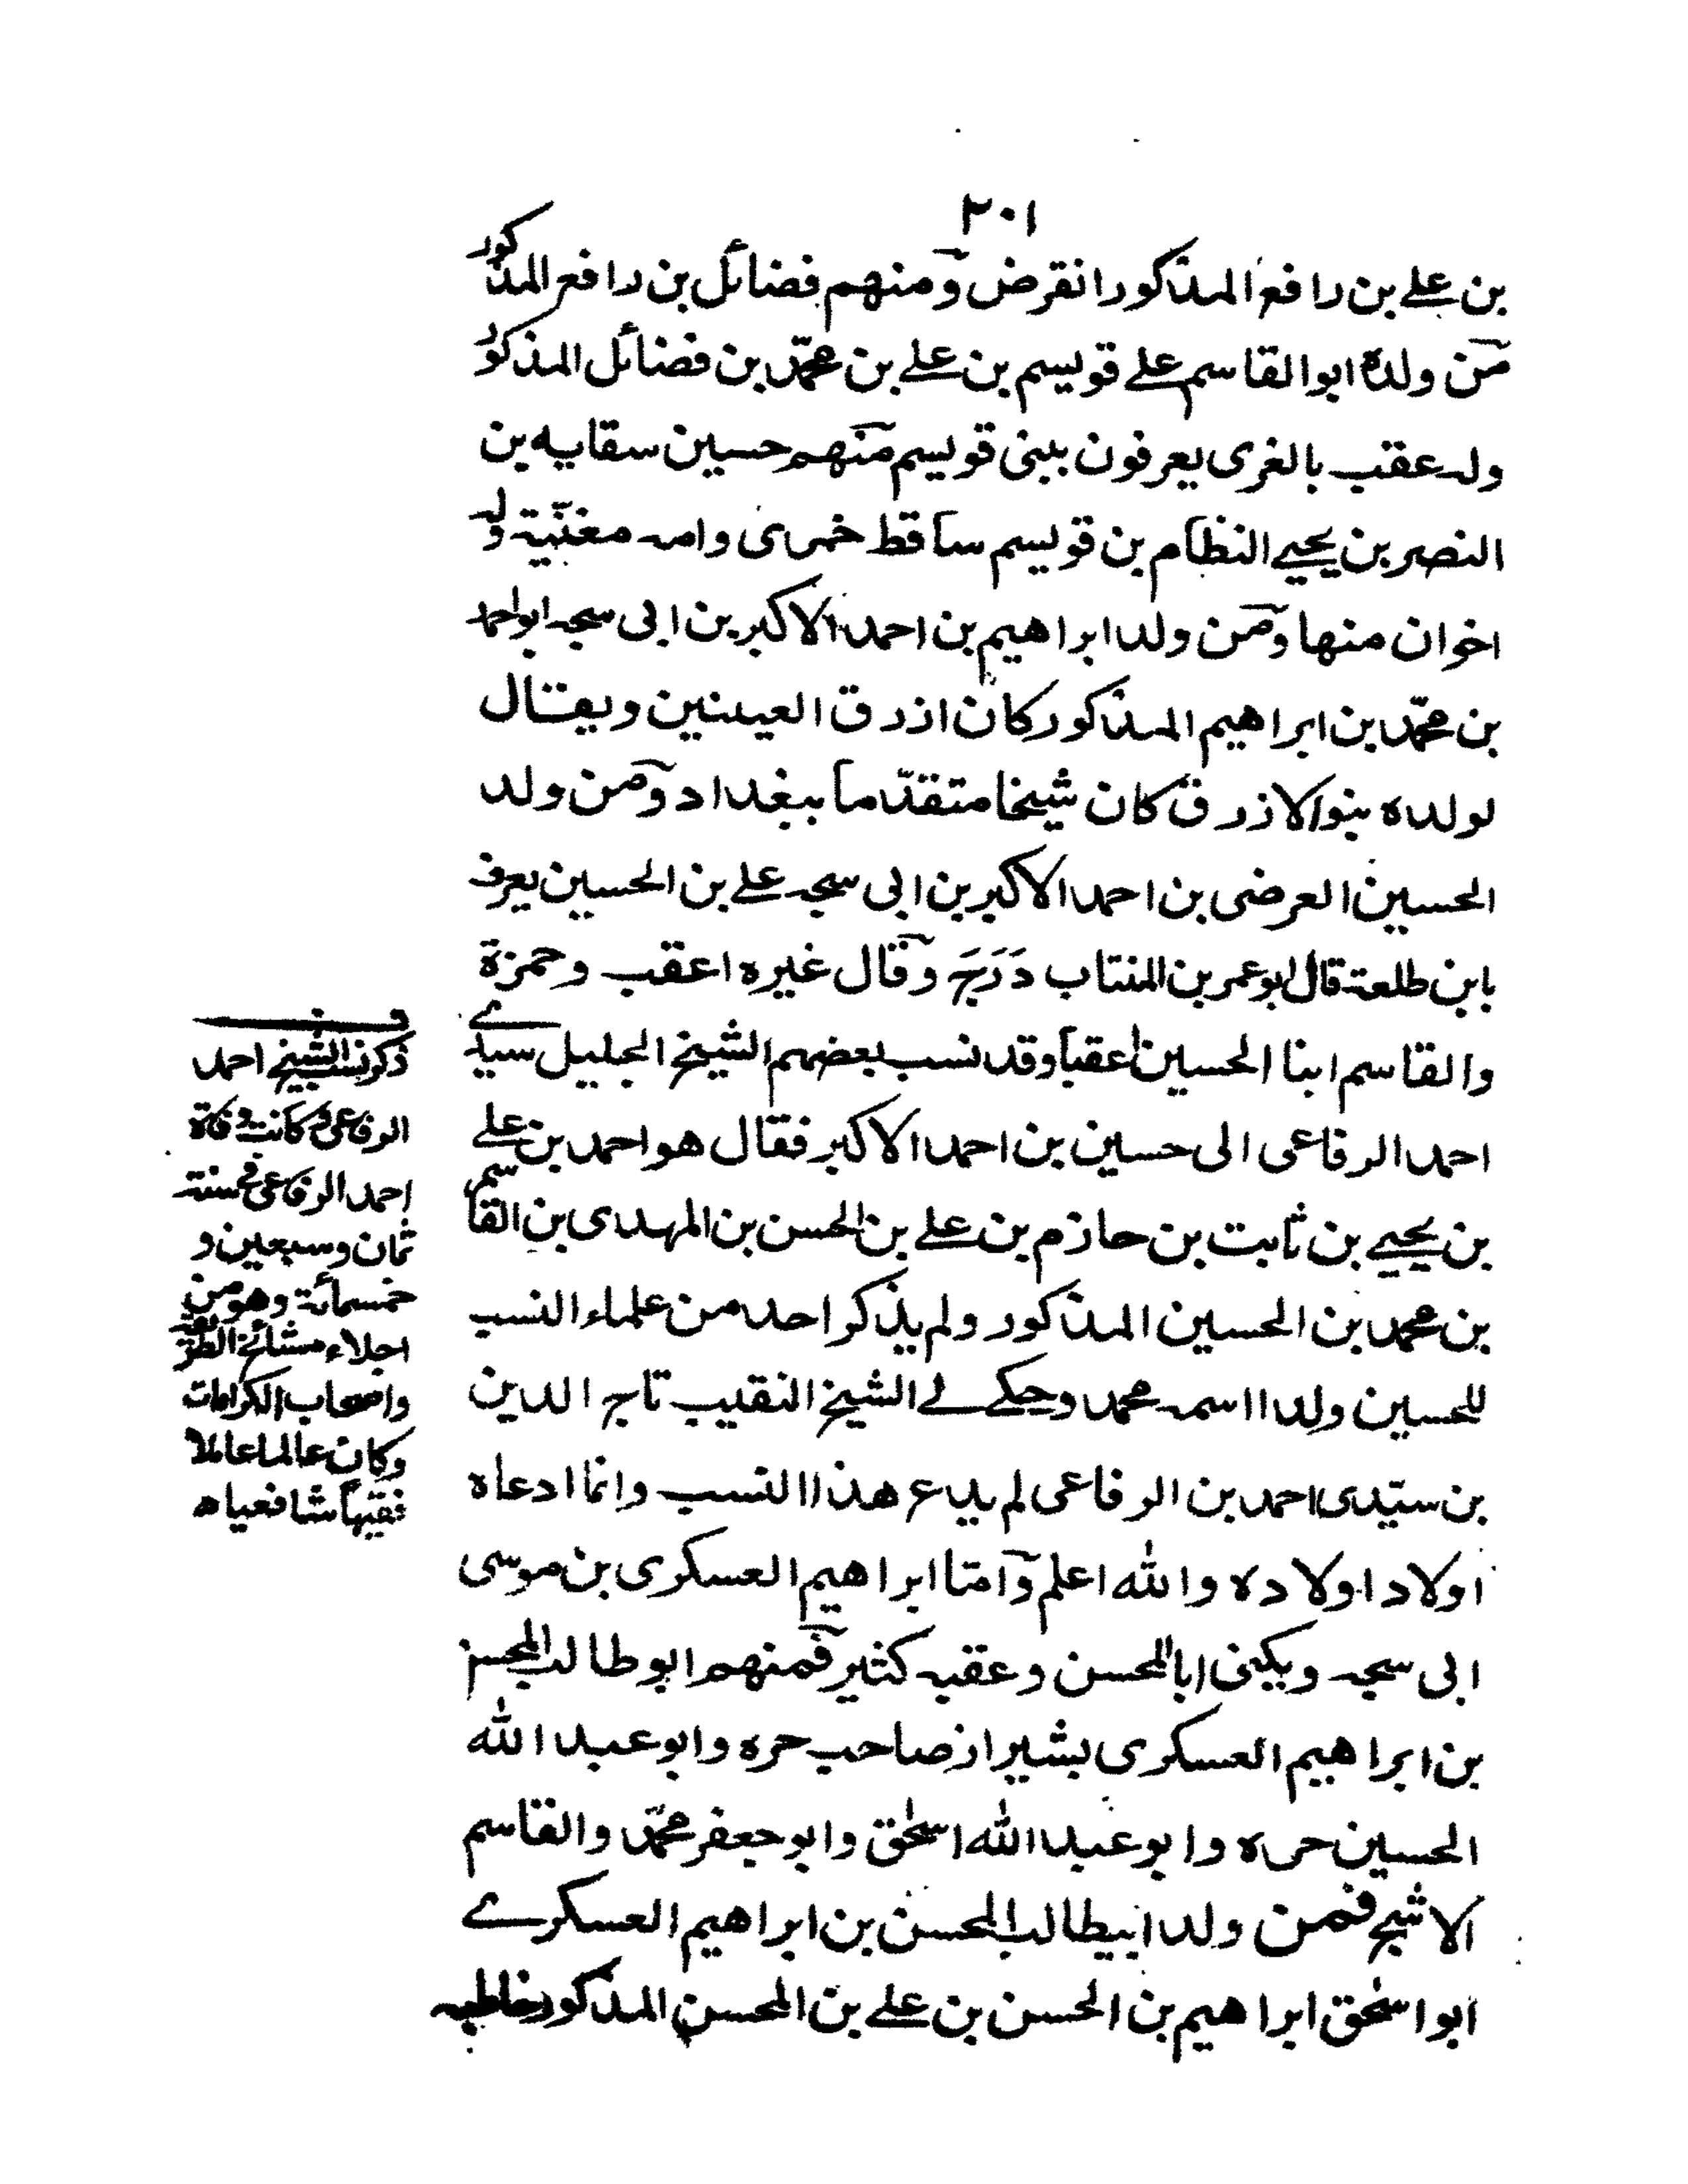 ٢٠١
بن علے بن رافع المذكور انقرض ومنهم فضائل بن رافع المذكور
من ولده ابو القاسم علے قويسم بن علے بن محمّد بن فضائل المذكور
وله عقب بالغرى يعرفون ببنى قويسم منهم حسين سقايه بن
النصر بن يحيے النظام بن قويسم ساقط خمرى وامه مغنّية وله
اخوان منها ومن ولد ابراهيم بن احمد الاكبر بن ابى سبحه ابو احمد
بن محمّد بن ابراهيم المذكور كان ازرق العينين ويقال
لولده بنو الازرق كان شيخا متقدّما ببغداد ومن ولد
الحسين العرضى بن احمد الاكبر بن ابى سبحه علے بن الحسين يعرف
بابن طلعة قال ابو عمر بن المنتاب دَرَجَ وقال غيره اعقب وحمزة
والقاسم ابنا الحسين اعقبا وقد نسب بعضهم الشيخ الجليل سيدے
احمد الرفاعى الى حسين بن احمد الاكبر فقال هو احمد بن علے
بن يحيے بن ثابت بن حازم بن علے بن الحسن بن المهدى بن القاسم
بن محمد بن الحسين المذكور ولم يذكر احد من علماء النسب
للحسين ولدا اسمه محمد وحكے لے الشيخ النقيب تاج الدين
بن سيّدى احمد بن الرفاعى لم يدع هذا النسب وانما ادعاه
اولاد اولاده والله اعلم وامّا ابراهيم العسكرى بن موسى
ابى سبحه ويكنى ابا المحسن وعقبه كثير فمنهم ابو طالب المحسن
بن ابراهيم العسكرى بشيراز صاحب حره وابو عبد الله
الحسين حره وابو عبد الله اسحٰق وابو جعفر محمّد والقاسم
الاشج فمن ولد ابيطالب المحسن بن ابراهيم العسكرے
ابو اسحٰق ابراهيم بن الحسن بن علے بن المحسن المذكور خاطبه
قف
ذكر نسب الشيخ احمد
الرفاعى وكانت وفاة
احمد الرفاعى فى سنة
ثمان وسبعين و
خمسمائة وهو من
اجلاء مشائخ الطريقه
واصحاب الكرامات
وكان عالما عاملا
فقيهاً شافعيا ه